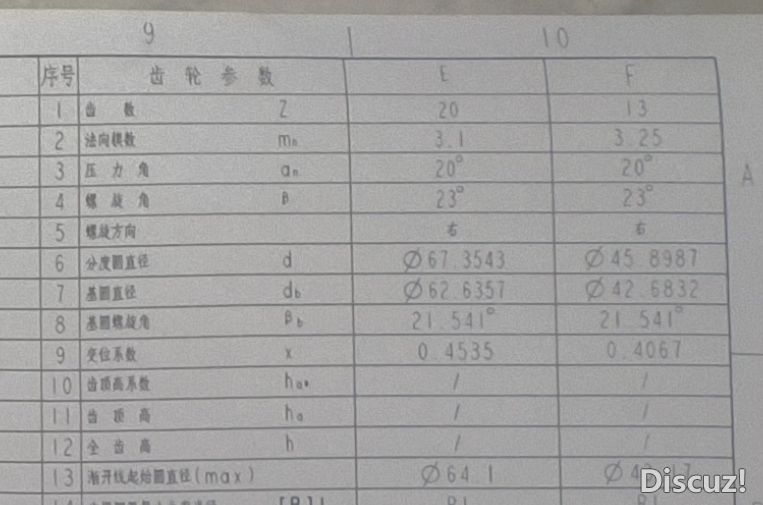 9 10
序号 齿轮参数 E F
1 齿数 Z 20 13
2 法向模数 mn 3.1 3.25
3 压力角 αn 20° 20°
4 螺旋角 β 23° 23°
5 螺旋方向 右 右
6 分度圆直径 d Ø67.3543 Ø45.8987
7 基圆直径 db Ø62.6357 Ø42.6832
8 基圆螺旋角 βb 21.541° 21.541°
9 变位系数 x 0.4535 0.4067
10 齿顶高系数 ha* / /
11 齿顶高 ha / /
12 全齿高 h / /
13 渐开线起始圆直径(max) Ø64.1
A
Discuz!